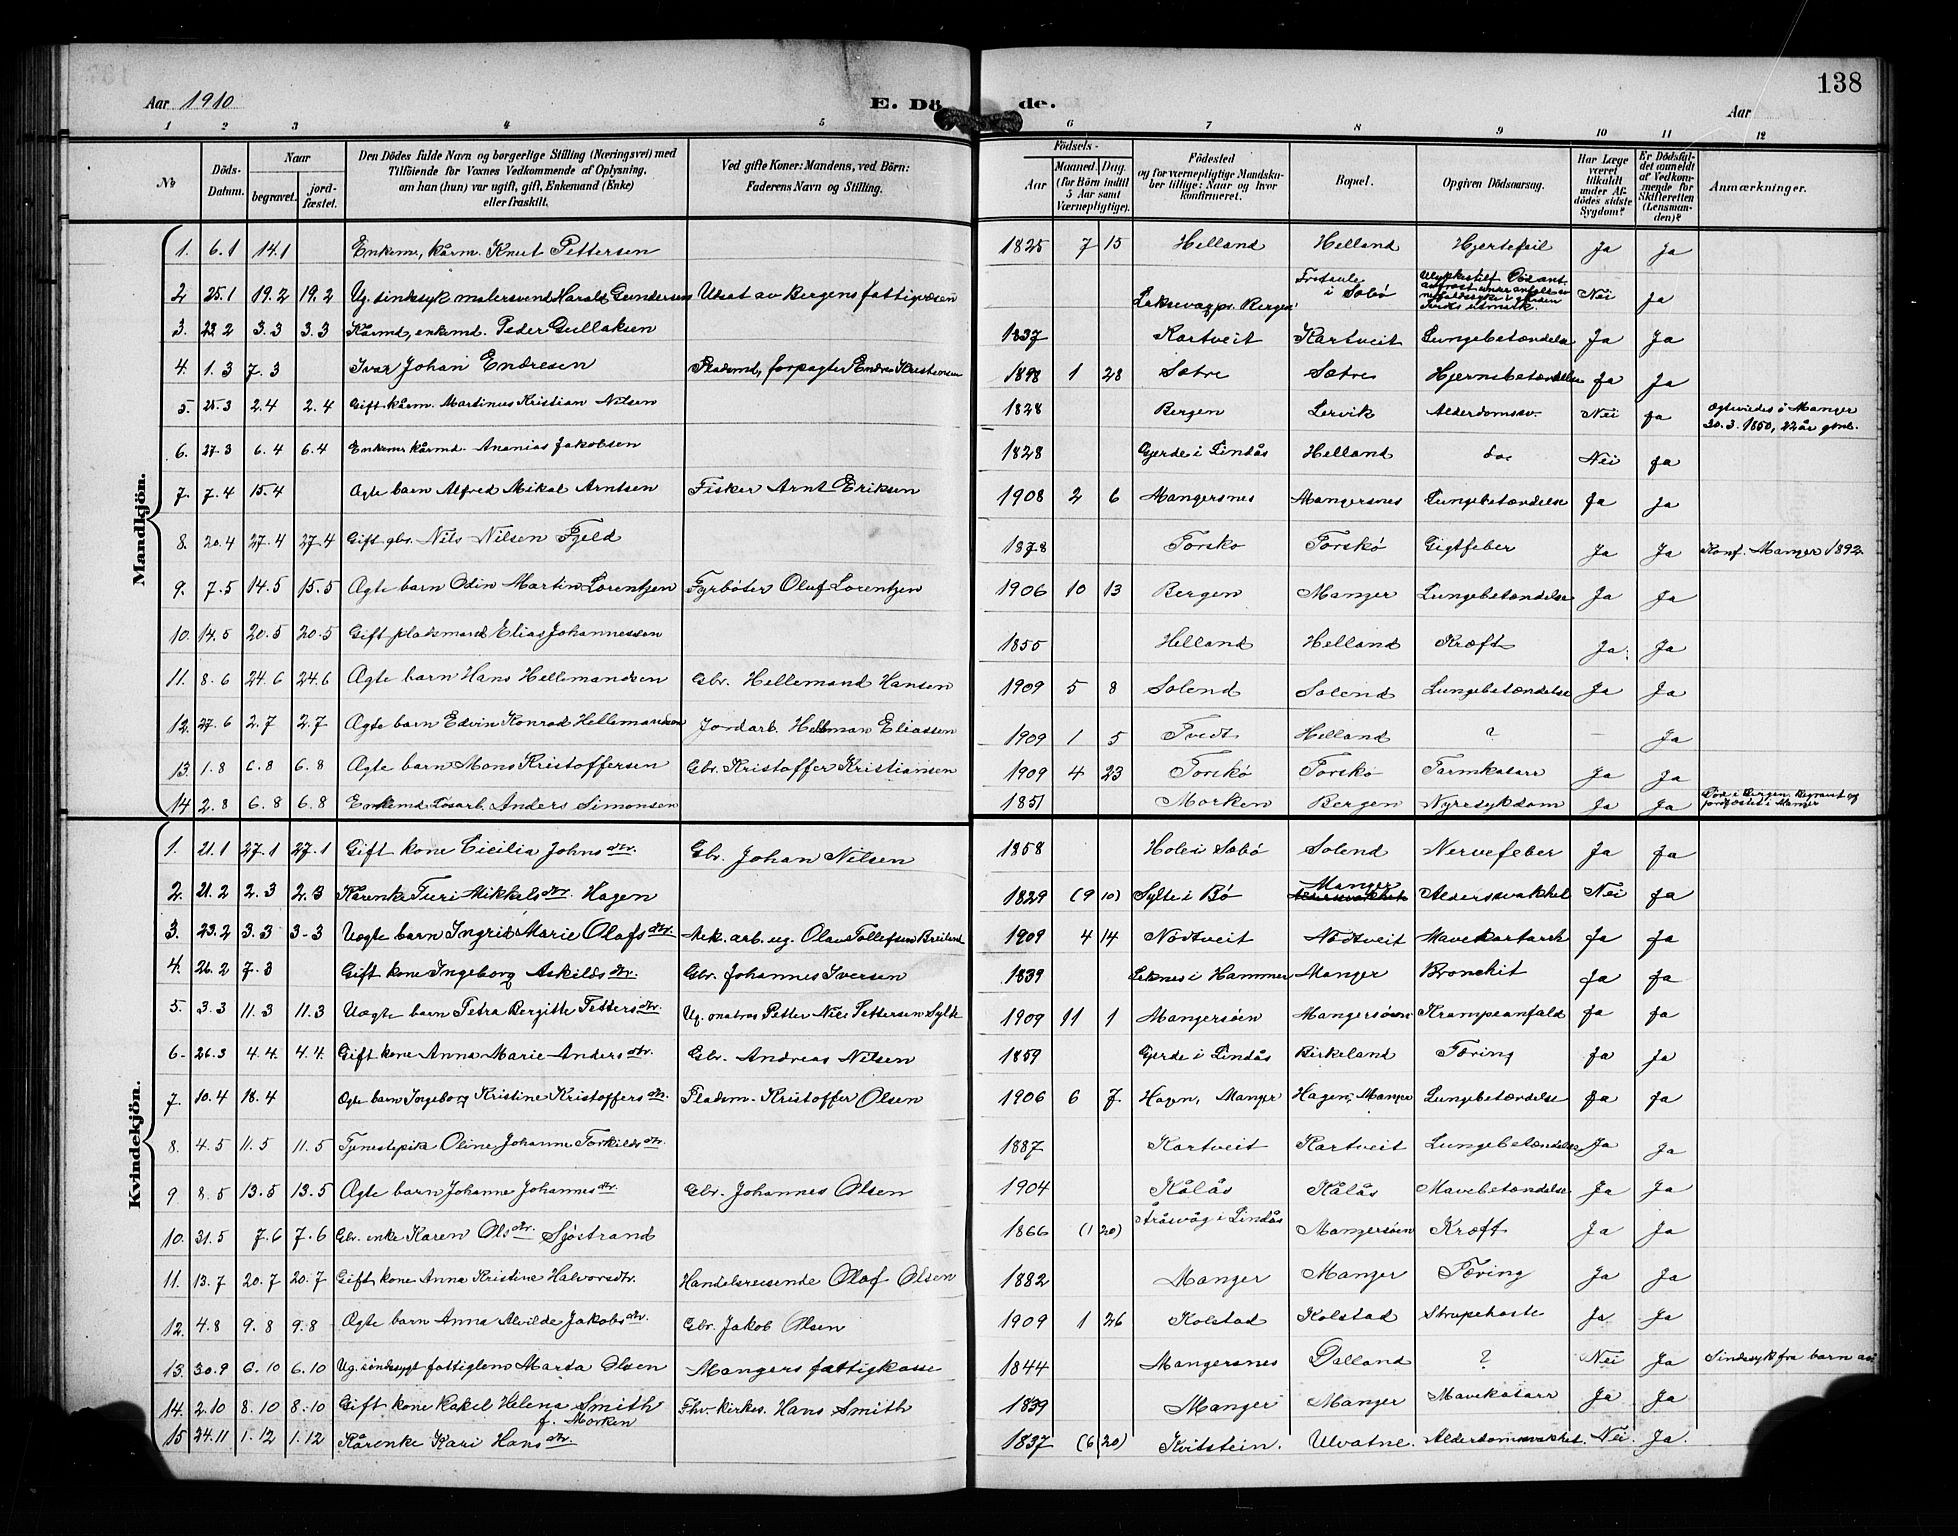 138
Aar 1910
E. Dö de.
Aar
1 2 3 4 5 6 7 8 9 10 11 12
No
Döds-Datum.
Naar
begravet.
jord-fæstet.
Den Dödes fulde Navn og borgerlige Stilling (Næringsvei) med Tilföiende for Voxnes Vedkommende af Oplysning, om han (hun) var ugift, gift, Enkemand (Enke) eller fraskilt.
Ved gifte Koner: Mandens, ved Börn: Faderens Navn og Stilling.
Födsels-
Aar
Maaned. Dag.
(for Börn indtil 5 Aar samt Værnepligtige).
Födested og for værnepligtige Mandskaber tillige: Naar og hvor konfirmeret.
Bopæl.
Opgiven Dödsaarsag.
Har Læge været tilkaldt under Afdödes sidste Sygdom?
Er Dödsfaldet anmeldt af Vedkommende for Skifteretten (Lensmanden)?
Anmærkninger.
Mandkjön.
1. 6.1 14.1 Enkem, kårm. Knut Pettersen 1825 7 15 Helland Helland Hjertefeil Ja Ja
2 25.1 19.2 19.2 Ug. sindssyk malersvend Harald Gundersen Utsat av Bergens fattigvæsen Laksevag pr. Bergen i Sæbö Nei Ja
3. 22.2 3.3 3.3 Kårmd, enkemd. Peder Gullaksen 1837 Kartveit Kartveit Lungebetændelse Ja Ja
4. 1.3 7.3 Ivar Johan Endresen Pladsmd, forpagter Endre Kristiansen 1898 1 28 Sætre Sætre Hjernebetændelse Ja Ja
5. 25.3 2.4 2.4 Gift kårm. Martinus Kristian Nilsen 1828 Bergen Lervik Alderdomssv. Nei Ja Ægteviedes i Manger 30.3.1850, 22 år gml.
6. 27.3 6.4 6.4 Enkem. kårmd. Ananias Jakobsen 1828 Gjerde i Lindås Helland do Nei Ja
7. 7.4 15.4 Ægte barn Alfred Mikal Arntsen Fisker Arnt Eriksen 1908 2 6 Mangersnes Mangersnes Lungebetændelse Ja Ja
8. 20.4 27.4 27.4 Gift gbr. Nils Nilsen Fjeld 1878 Torskö Torskö Gigtfeber Ja Ja Konf. Manger 1892
9. 7.5 14.5 15.5 Ægte barn Odin Martin Lorentzen Fyrböter Oluf Lorentzen 1906 10 13 Bergen Manger Lungebetændelse Ja Ja
10. 14.5 20.5 20.5 Gift pladsmand Elias Johannessen 1855 Helland Helland Kræft Ja Ja
11. 8.6 24.6 24.6 Ægte barn Hans Hellemandsen Gbr. Hellemand Hansen 1909 5 8 Solend Solend Lungebetændelse Ja Ja
12. 27.6 2.7 2.7 Ægte barn Edvin Konrad Hellemandsen Jordarb. Helleman Eliassen 1909 1 5 Tvedt Helland ? — Ja
13. 1.8 6.8 6.8 Ægte barn Mons Kristoffersen Gbr. Kristoffer Kristiansen 1909 4 23 Torskö Torskö Tarmkatarr Ja Ja
14 2.8 6.8 6.8 Enkemd. Lösarb. Anders Simonsen 1851 Morken Bergen Nyresykdom Ja Ja Död i Bergen. Begravet og jordfæstet i Manger
Kvindekjön.
1. 21.1 27.1 27.1 Gift kone Cicilia Johnsdtr. Gbr. Johan Nilsen 1858 Hole i Sæbö Solend Nervefeber Ja Ja
2. 21.2 2.3 2.3 Kårenke Turi Mikkelsdtr. Hagen 1829 (9 10) Sylte i Bö Manger Alderssvakhet Nei Ja
3. 23.2 3.3 3-3 Uægte barn Ingrid Marie Olafsdtr Mek. arb. ug. Olav Tollefsen Breiland 1909 4 14 Nödtveit Nödtveit Mavekatarrh Ja Ja
4. 26.2 7.3 Gift kone Ingeborg Askildsdtr. Gbr. Johannes Iversen 1839 Leknes i Hammer Manger Bronchit Ja Ja
5. 3.3 11.3 11.3 Uægte barn Petra Bergitte Pettersdtr. Ug. matros Petter Nic. Pettersen Sylte 1909 11 1 Mangersöen Mangersöen Krampeanfald Ja Ja
6. 26.3 4.4. 4.4. Gift kone Anna Marie Andersdtr. Gbr. Andreas Nilsen 1859 Gjerde i Lindås Birkeland Tæring Ja Ja
7. 10.4 18.4 Ægte barn Ingeborg Kristine Kristoffersdtr. Pladsm. Kristoffer Olsen 1906 6 7 Hagen, Manger Hagen, Manger Lungebetændelse Ja Ja
8. 4.5 11.5 11.5 Tjenestepike Oline Johanne Torkildsdtr. 1887 Kartveit Kartveit Lungebetændelse Ja Ja
9 8.5 13.5 13.5 Ægte barn Johanne Johannesdtr. Gbr. Johannes Olsen 1904 Kålås Kålås Mavebetændelse Ja Ja
10. 31.5 7.6 7.6 Gbr. enke Karen Olsdtr. Sjöstrand 1866 (1 20) Åråsvåg i Lindås Mangersöen Kræft Ja Ja
11. 13.7 20.7 20.7 Gift kone Anna Kristine Halvorsdtr. Handelsreisende Olaf Olsen 1882 Manger Manger Tæring Ja Ja
12. 4.8 9.8 9.8 Ægte barn Anna Alvilde Jakobsdtr. Gbr. Jakob Olsen 1909 1 26 Kolstad Kolstad Strupehoste Ja Ja
13. 30.9 6.10 6.10 Ug. sindssygt fattiglem Marta Olsen Mangers fattigkasse 1844 Mangersnes Dalland ? Nei Ja Sindssyk fra barn av
14. 2.10 8.10 8.10 Gift kone Rakel Helena Smith f. Morken Fhv. kirkes. Hans Smith 1839 Manger Manger Mavekatarr Ja Ja
15 24.11 1.12 1.12 Kårenke Kari Hansdtr. 1837 (6 20) Kvitstein. Ulvatne. Alderdomssvakhet. Nei. Ja.